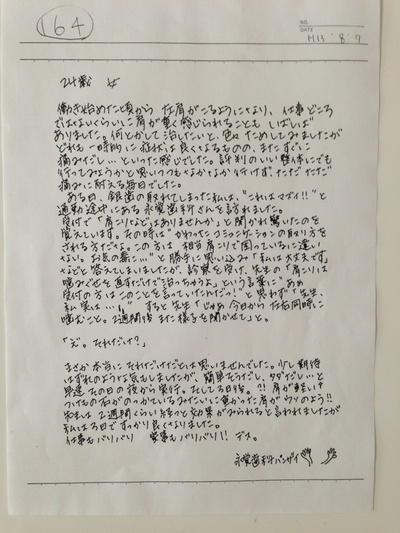 164
NO.
DATE H13・8・7
24歳 女
働き始めた頃から 左肩がこるようになり、仕事どころ
ではないくらいに肩が重く感じられることも しばしば
ありました。何とかして治したいと、色々 ためしてみましたが
どれも 一時的に 症状は良くなるものの、またすぐに
痛みだし…といった感じでした。評判のいい整体にでも
行ってみようかと思いつつもなかなか行けず、ただただ
痛みに耐える毎日でした。
ある日、銀歯の取れてしまった私は、"これはマズイ!!"と
通勤途中にある 永覚歯科さんを訪れました。
受付で「肩こりなどはありませんか」と聞かれ驚いたのを
覚えています。その時は"かわったコミュニケーションの取り方を
される方だなぁ。この方は 相当肩こりで困っているに違い
ない。お気の毒に…"と勝手に思い込み「私は大丈夫です」
などと答えてしまいましたが、診察を受け、先生の「肩こりは
噛みぐせを直すだけで治っちゃうよ」という言葉に"あぁ
受付の方はこのことを言っていたんだっ!"と思わず「先生、
私 実は…。」 すると先生「じゃあ 今日から 左右同時に
噛むこと。2週間後 また様子を聞かせて」と。
「え。それだけ?」
まさか本当に それだけだとは思いませんでした。少し期待
はずれのような気もしましたが、簡単そうだし、タダだし…と
早速 その日の夜から実行。そして3日後。?! 肩が軽い!
つけもの石がのっかているみたいに重かった肩がウソのよう!!
先生は 2週間くらい経つと効果がみられると言われましたが
私は3日ですっかり良くなりました。
仕事もバリバリ 家事もバリバリ!! デス。
永覚歯科バンザイ